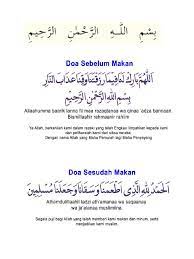 بِسْمِ اللَّهِ الرَّحْمٰنِ الرَّحِيْمِ
Doa Sebelum Makan
اَللّٰهُمَّ بَارِكْ لَنَا فِيْمَا رَزَقْتَنَا وَقِنَا عَذَابَ النَّارِ
بِسْمِ اللَّهِ الرَّحْمٰنِ الرَّحِيْمِ
Allaahumma baarik lanna fii maa razaqtanaa wa qinaa 'adza bannaari.
Bismillaahir rahmaanir rahiim
Ya Allah, berkanilah kami dalam rezeki yang telah Engkau limpahkan kepada kami
dan peliharalah kami dari siksa neraka.
Dengan nama Allah yang Maha Pemurah lagi Maha Penyayang
Doa Sesudah Makan
اَلْحَمْدُ لِلّٰهِ الَّذِيْ أَطْعَمَنَا وَسَقَانَا وَجَعَلَنَا مُسْلِمِيْنَ
Alhamdulillaahil ladzi ath'amanaa wa saqaanaa
wa ja'alanaa muslimiina.
Segala puji bagi Allah yang telah memberi kami makan dan minum, serta
menjadikan kami muslim.